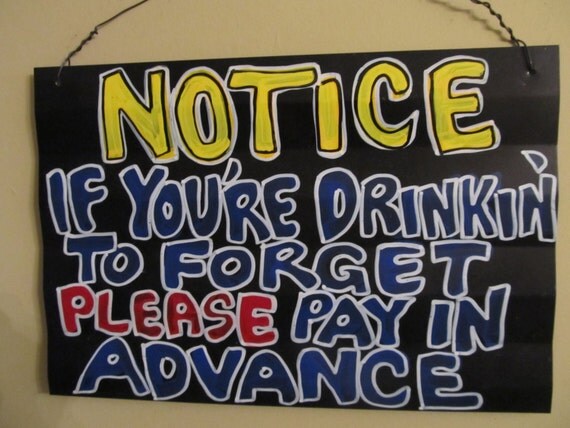 NOTiCE
IF YOU'RE DRINKIN'
TO FORGET
PLEASE PAY IN
ADVANCE